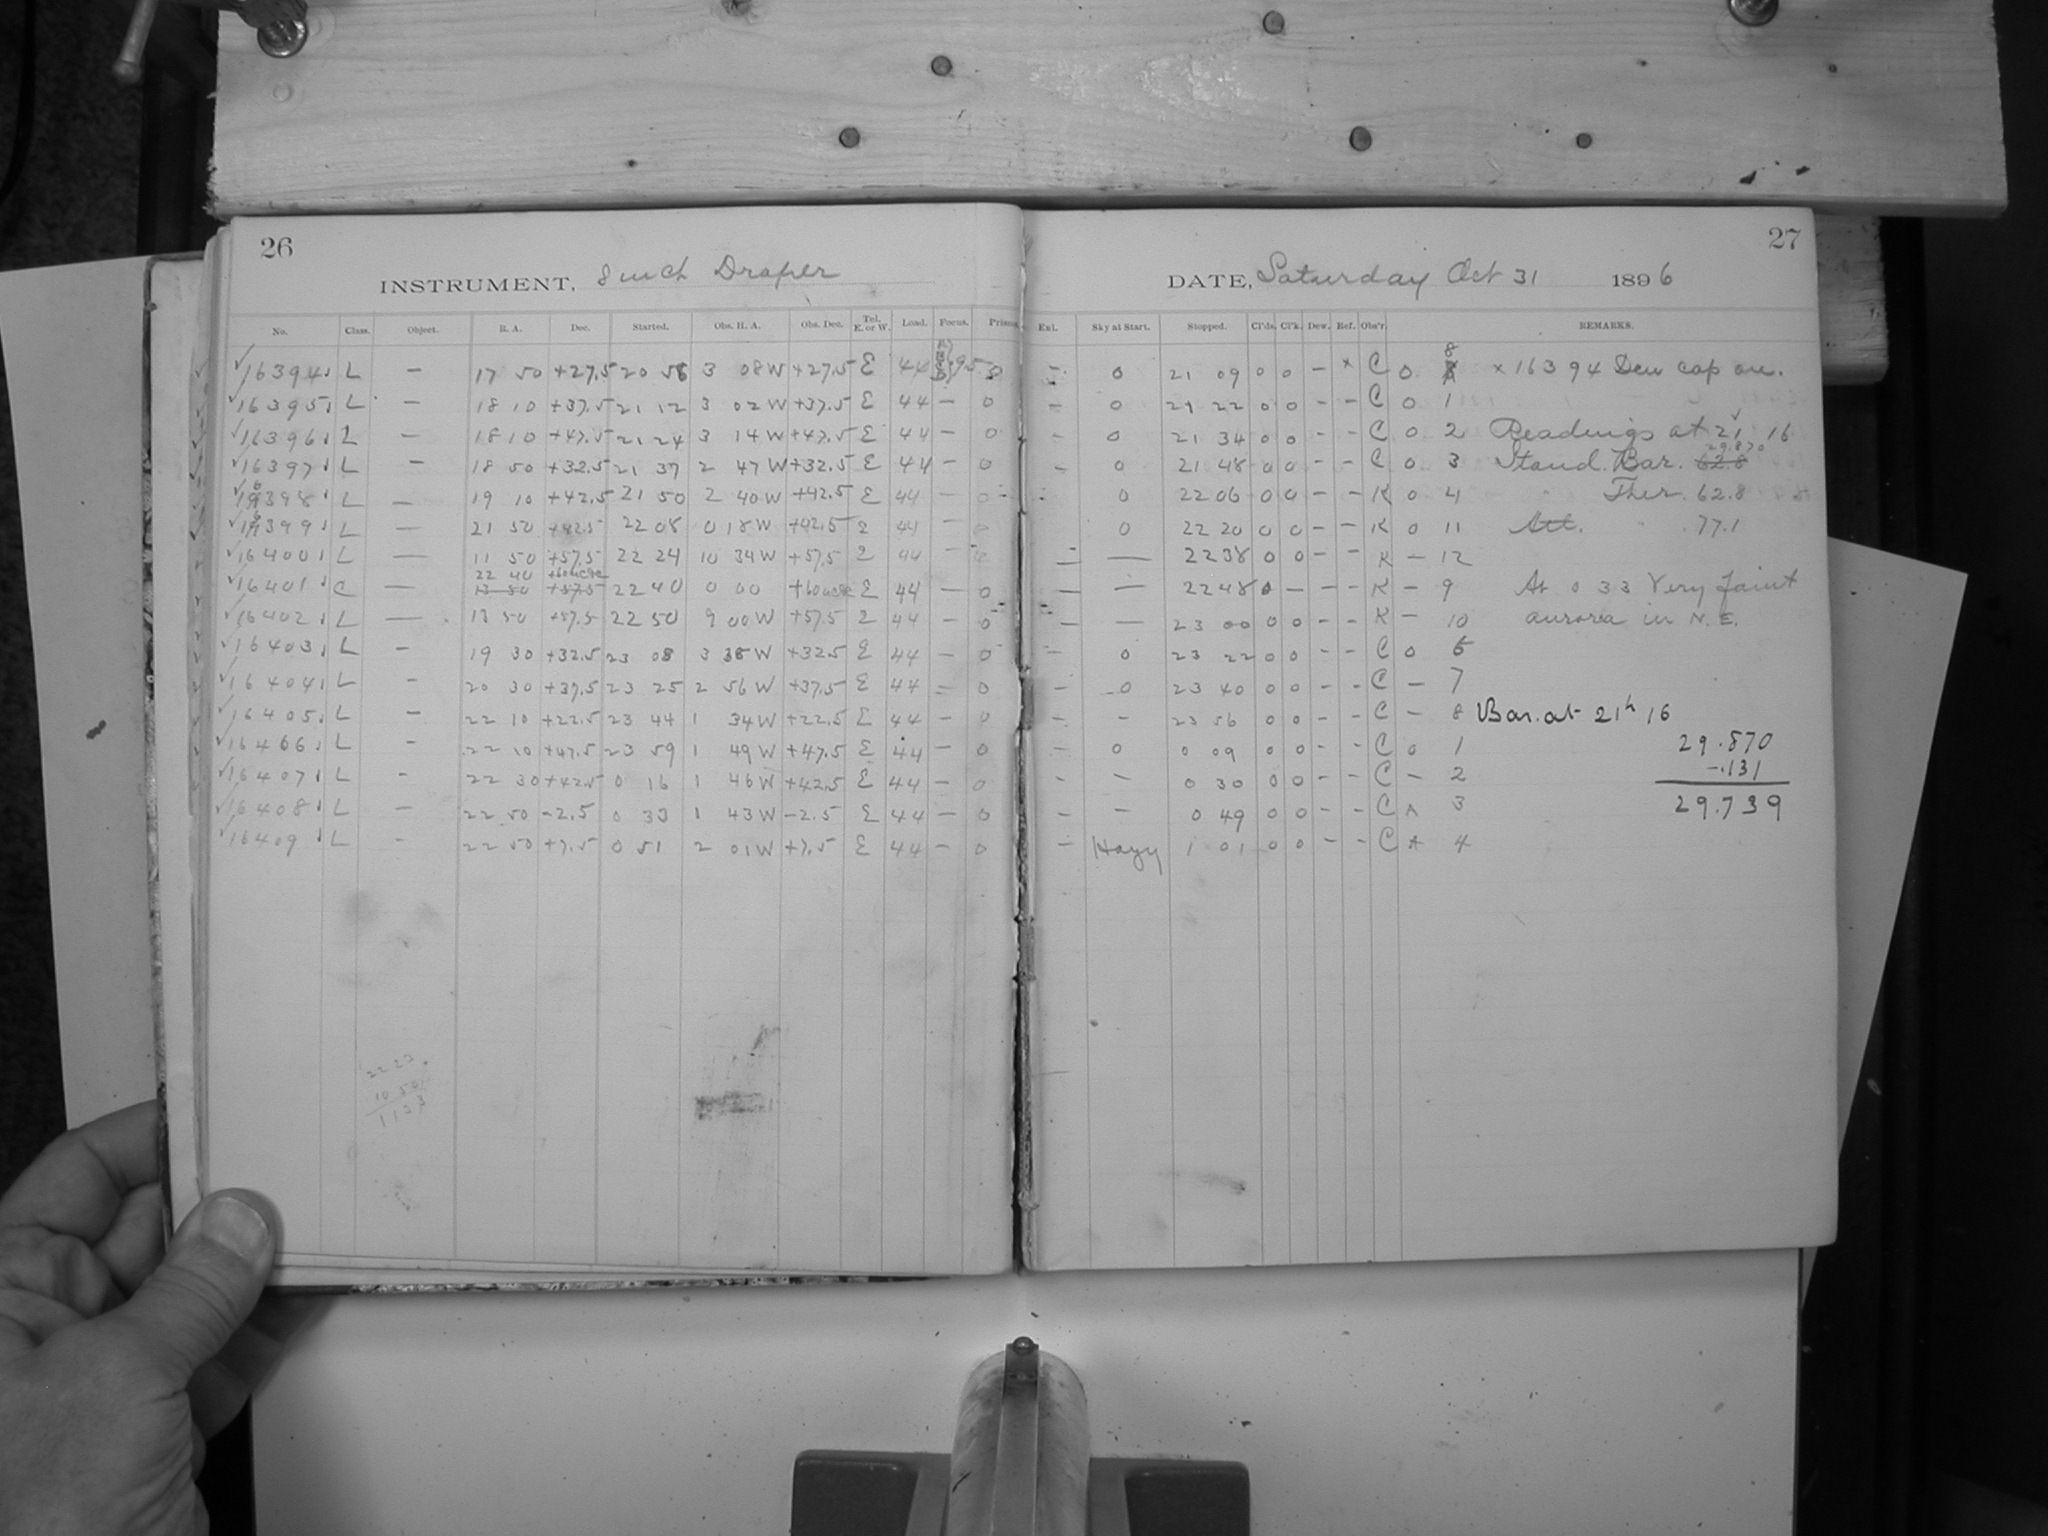 26
INSTRUMENT, 8 inch Draper
No. Class. Object. R. A. Dec. Started. Obs. H. A. Obs. Dec. Tel. E. or W. Load. Focus. Prisms
16394 L – 17 50 +27.5 20 58 3 08W +27.5 E 44 95 0
16395 L – 18 10 +37.5 21 12 3 02W +37.5 E 44 – 0
16396 L – 18 10 +47.5 21 24 3 14W +47.5 E 44 – 0
16397 L – 18 50 +32.5 21 37 2 47W +32.5 E 44 – 0
16398 L – 19 10 +42.5 21 50 2 40W +42.5 E 44 – 0
16399 L – 21 50 +42.5 22 08 0 18W +42.5 E 44 – 0
16400 L – 11 50 +57.5 22 24 10 34W +57.5 E 44 –
22 40
16401 C – 13 50 +57.5 22 40 0 00 +60 E 44 – 0
16402 L – 13 50 +57.5 22 50 9 00W +57.5 E 44 – 0
16403 L – 19 30 +32.5 23 08 3 38W +32.5 E 44 – 0
16404 L – 20 30 +37.5 23 25 2 56W +37.5 E 44 – 0
16405 L – 22 10 +22.5 23 44 1 34W +22.5 E 44 – 0
16406 L – 22 10 +47.5 23 59 1 49W +47.5 E 44 – 0
16407 L – 22 30 +42.5 0 16 1 46W +42.5 E 44 – 0
16408 L – 22 50 –2.5 0 33 1 43W –2.5 E 44 – 0
16409 L – 22 50 +7.5 0 51 2 01W +7.5 E 44 – 0
22 23
10 50
11 33
27
DATE, Saturday Oct 31 1896
Exl. Sky at Start. Stopped. Cl'ds. Cl'k. Dew. Ref. Obs'r. REMARKS.
8
– 0 21 09 0 0 – x C 0 x 16394 Dew cap on.
– 0 21 22 0 0 – – C 0 1
– 0 21 34 0 0 – – C 0 2 Readings at 21 16
29.870
– 0 21 48 0 0 – – C 0 3 Stand. Bar. 62.8
– 0 22 06 0 0 – – K 0 4 " Ther. 62.8
0 22 20 0 0 – – K 0 11 Att. " 77.1
– – 22 38 0 0 – – K – 12
– – 22 48 0 – – – K – 9 At 0 33 Very faint
– – 23 00 0 0 – – K – 10 aurora in N.E.
– 0 23 22 0 0 – – C 0 6
– 0 23 40 0 0 – – C – 7
– – 23 56 0 0 – – C – 8 Bar. at 21h 16
– 0 0 09 0 0 – – C 0 1 29.870
– – 0 30 0 0 – – C – 2 –.131
– – 0 49 0 0 – – C A 3 29.739
– Hazy 1 01 0 0 – – C A 4